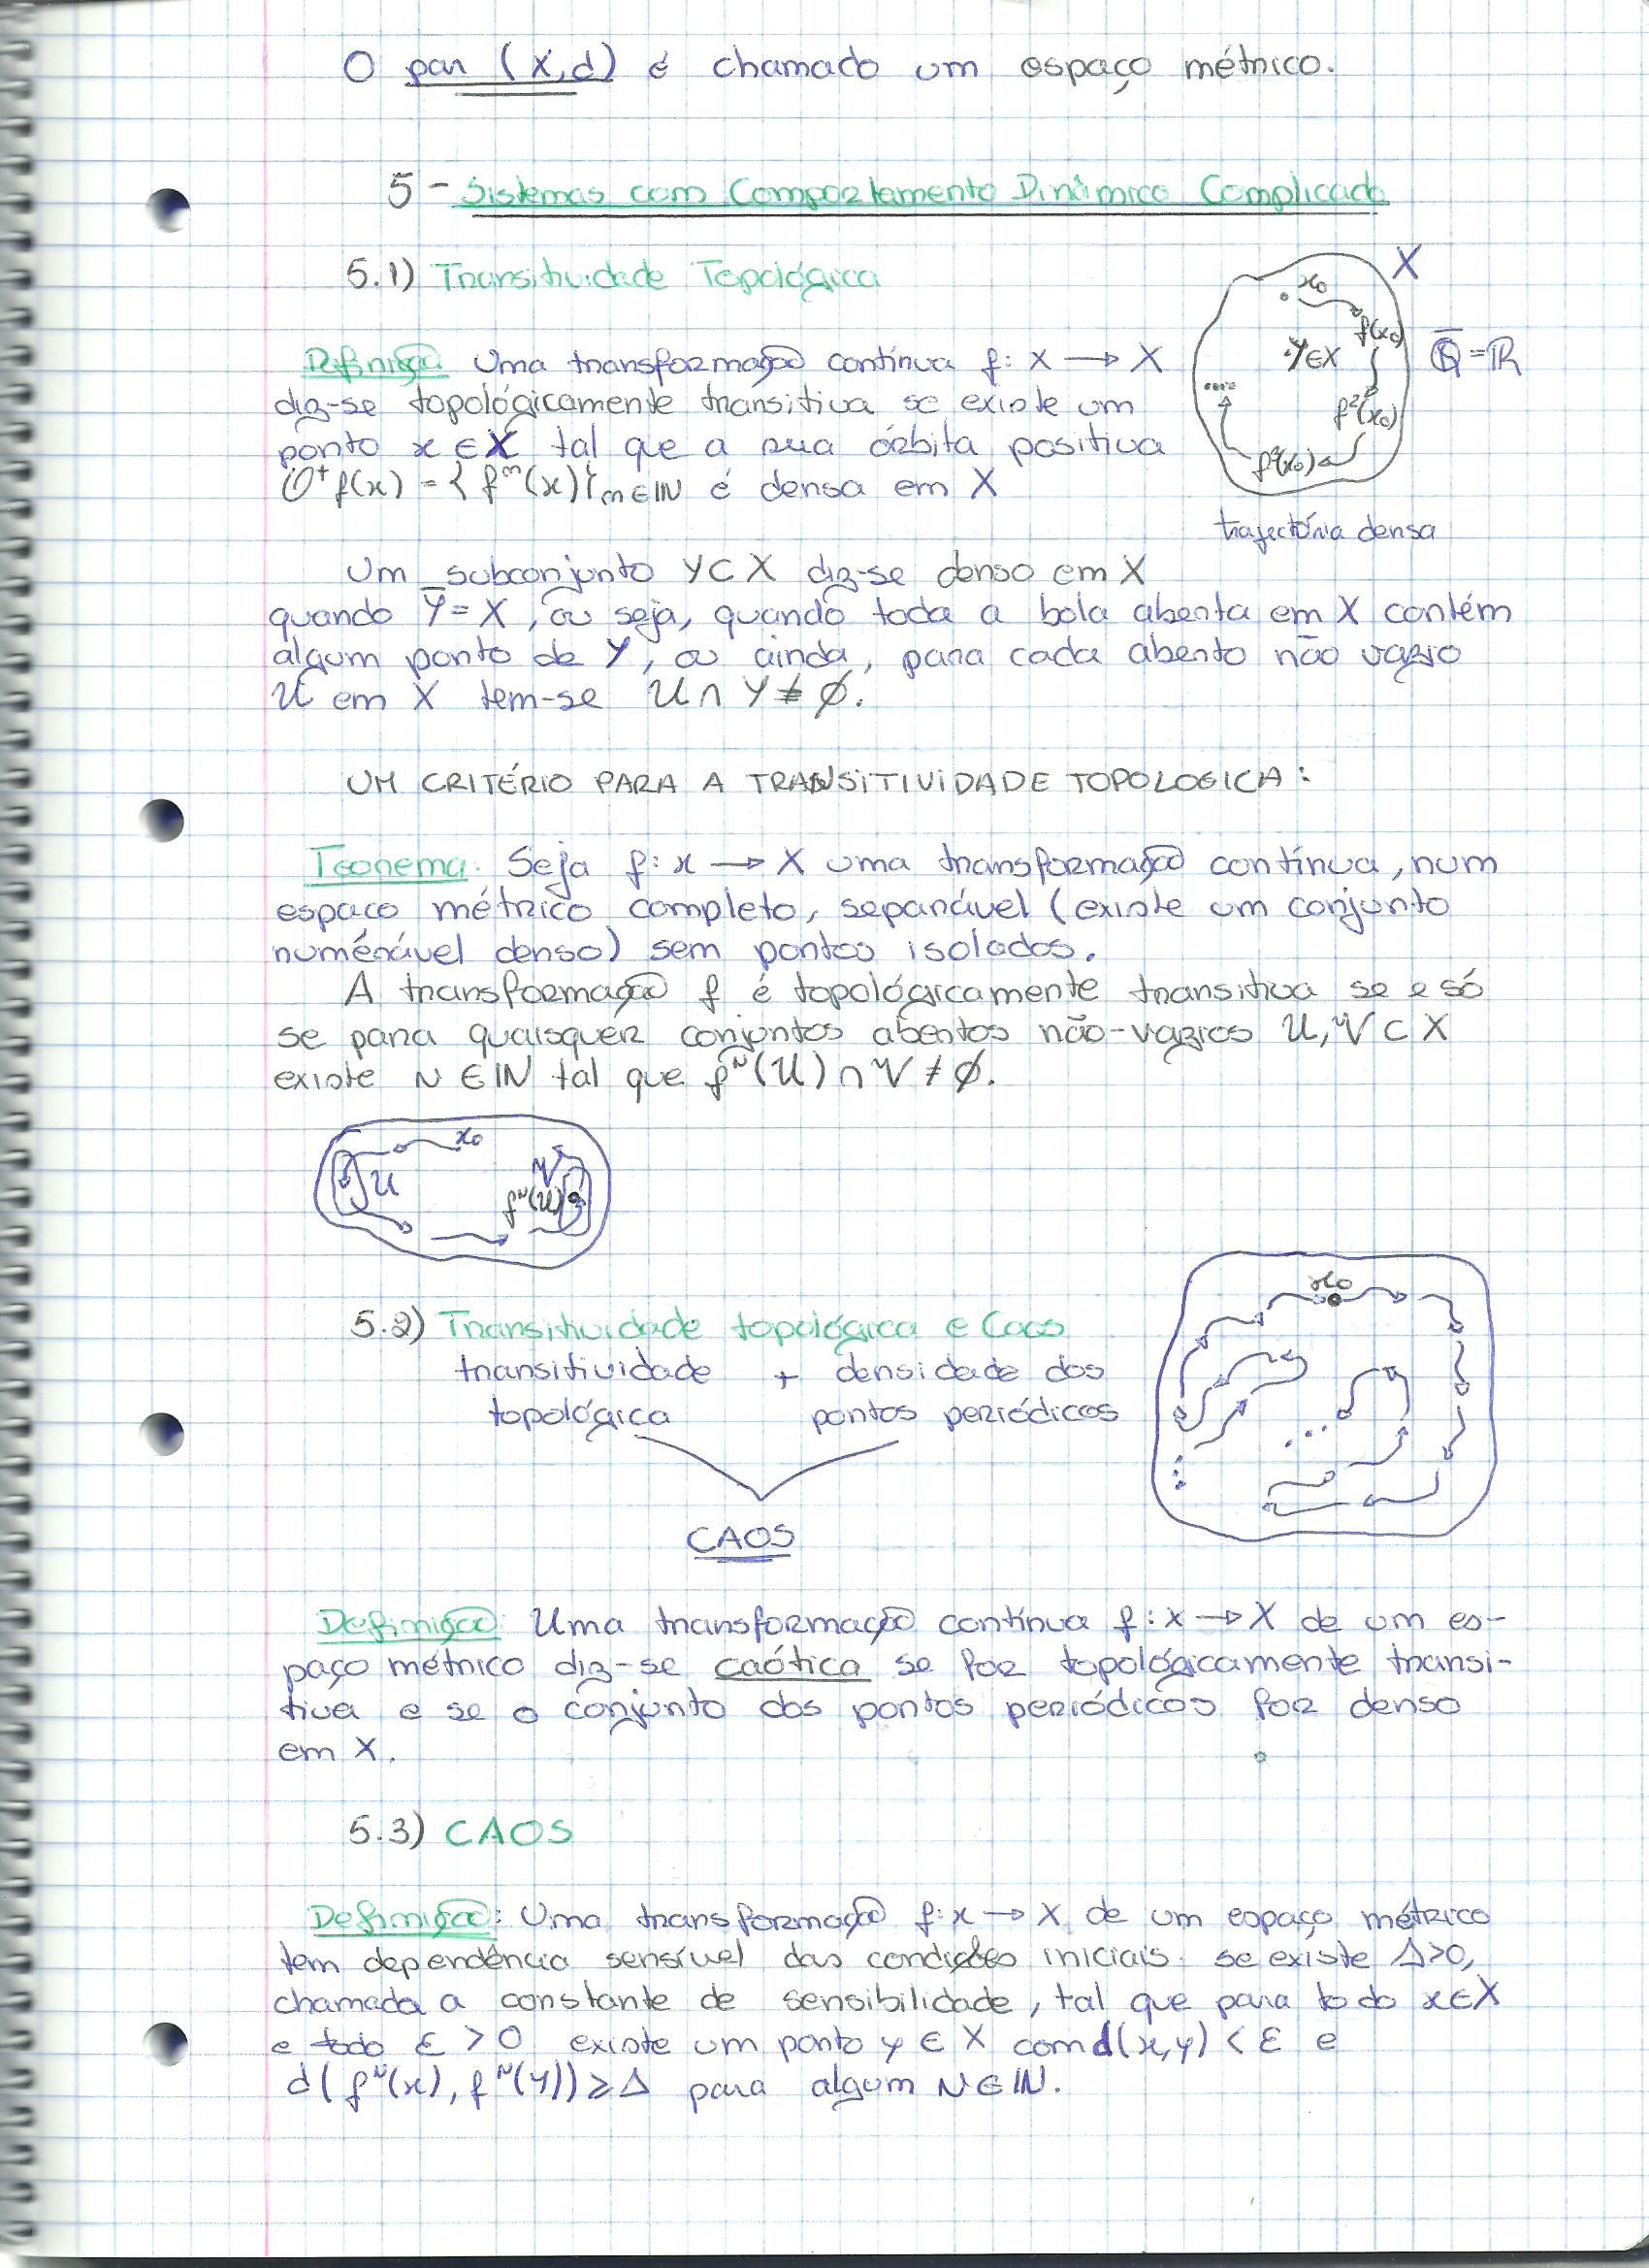 O par (X,d) é chamado um espaço métrico.
5 - Sistemas com Comportamento Dinâmico Complicado
5.1) Transitividade Topológica
X
x₀
f(x₀)
.Y∈X
f²(x₀)
f³(x₀)
....
Q̅ = ℝ
trajectória densa
Definição Uma transformação contínua f: X → X
diz-se topológicamente transitiva se existe um
ponto x ∈ X tal que a sua órbita positiva
O⁺f(x) = { fⁿ(x)}ₙ∈ℕ é densa em X
Um subconjunto Y⊂X diz-se denso em X
quando Y̅ = X, ou seja, quando toda a bola aberta em X contém
algum ponto de Y, ou ainda, para cada aberto não vazio
U em X tem-se U∩Y≠∅.
UM CRITÉRIO PARA A TRANSITIVIDADE TOPOLOGICA:
Teorema: Seja f: x → X uma transformação contínua, num
espaco métrico completo, separável (existe um conjunto
numérável denso) sem pontos isolados.
A transformação f é topológicamente transitiva se e só
se para quaisquer conjuntos abertos não-vazios U, V ⊂ X
existe N ∈ ℕ tal que fᴺ(U) ∩ V ≠ ∅.
x₀
U
V
fᴺ(U)
5.2) Transitividade topológica e Caos
transitividade + densidade dos
topológica pontos periódicos
CAOS
x₀
Definição: Uma transformação contínua f: X → X de um es-
paço métrico diz-se caótica se for topológicamente transi-
tiva e se o conjunto dos pontos periódicos for denso
em X.
5.3) CAOS
Definição: Uma transformação f: x → X de um espaço métrico
tem dependência sensível das condições iniciais se existe Δ>0,
chamada a constante de sensibilidade, tal que para todo x∈X
e todo ε > 0 existe um ponto y ∈ X com d(x,y) < ε e
d(fᴺ(x), fᴺ(y)) ≥ Δ para algum N∈ℕ.